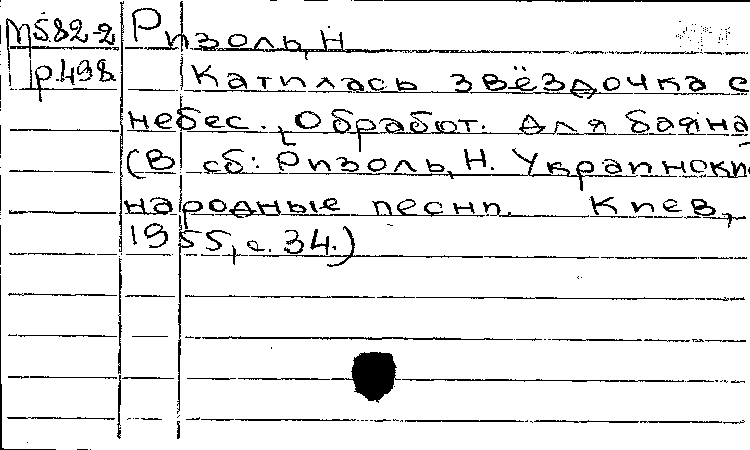 М582-2 Ризоль, Н
р.498
Катилась звёздочка с
небес. [Обработ. для баяна
(В сб: Ризоль, Н. Украински
народные песни. Киев,
1955, с. 34.)